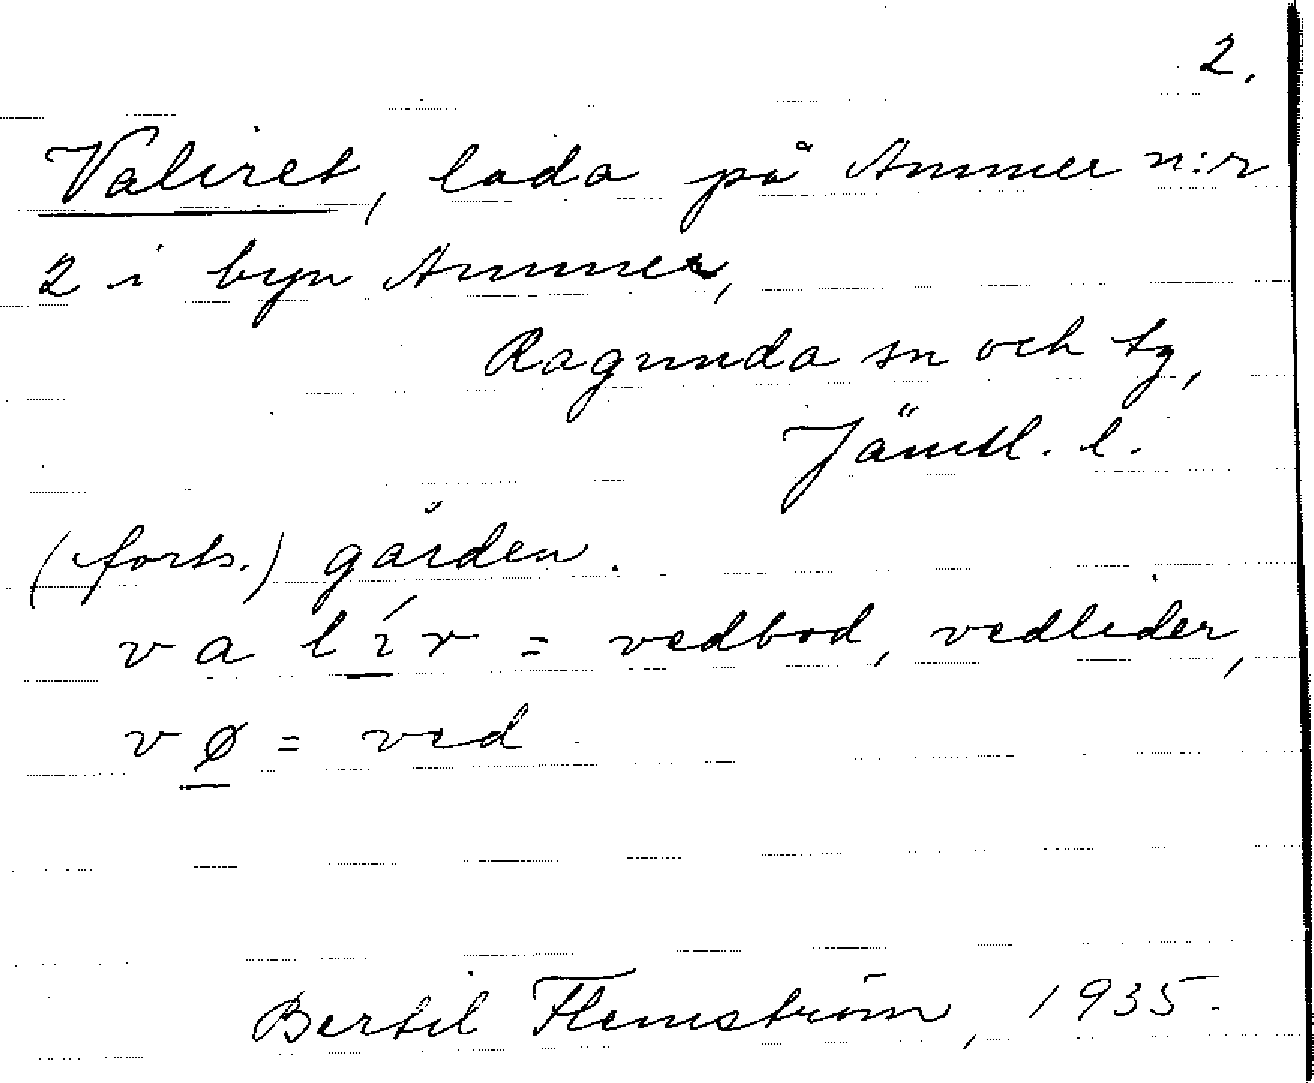 2.
Valiret, lada på Ammer n:r
2 i byn Ammer,
Ragunda sn och tg,
Jämtl. l.
(forts.) gården.
va lír = vedbod, vedlider,
vø = ved
Bertil Flemström, 1935.